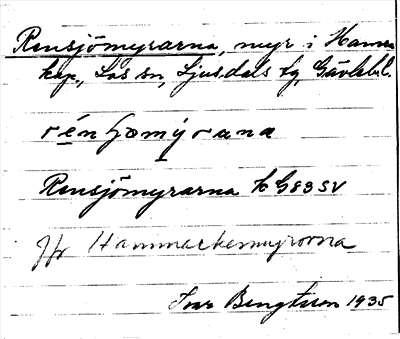 Rensjömyrarna, myr i Hamra
kap., Los sn, Ljusdals tg, Gävlebl.
rénʃömýrana
Rensjömyrarna k G83SV
Jfr Hammarkenmyrorna
Ivar Bengtsson 1935